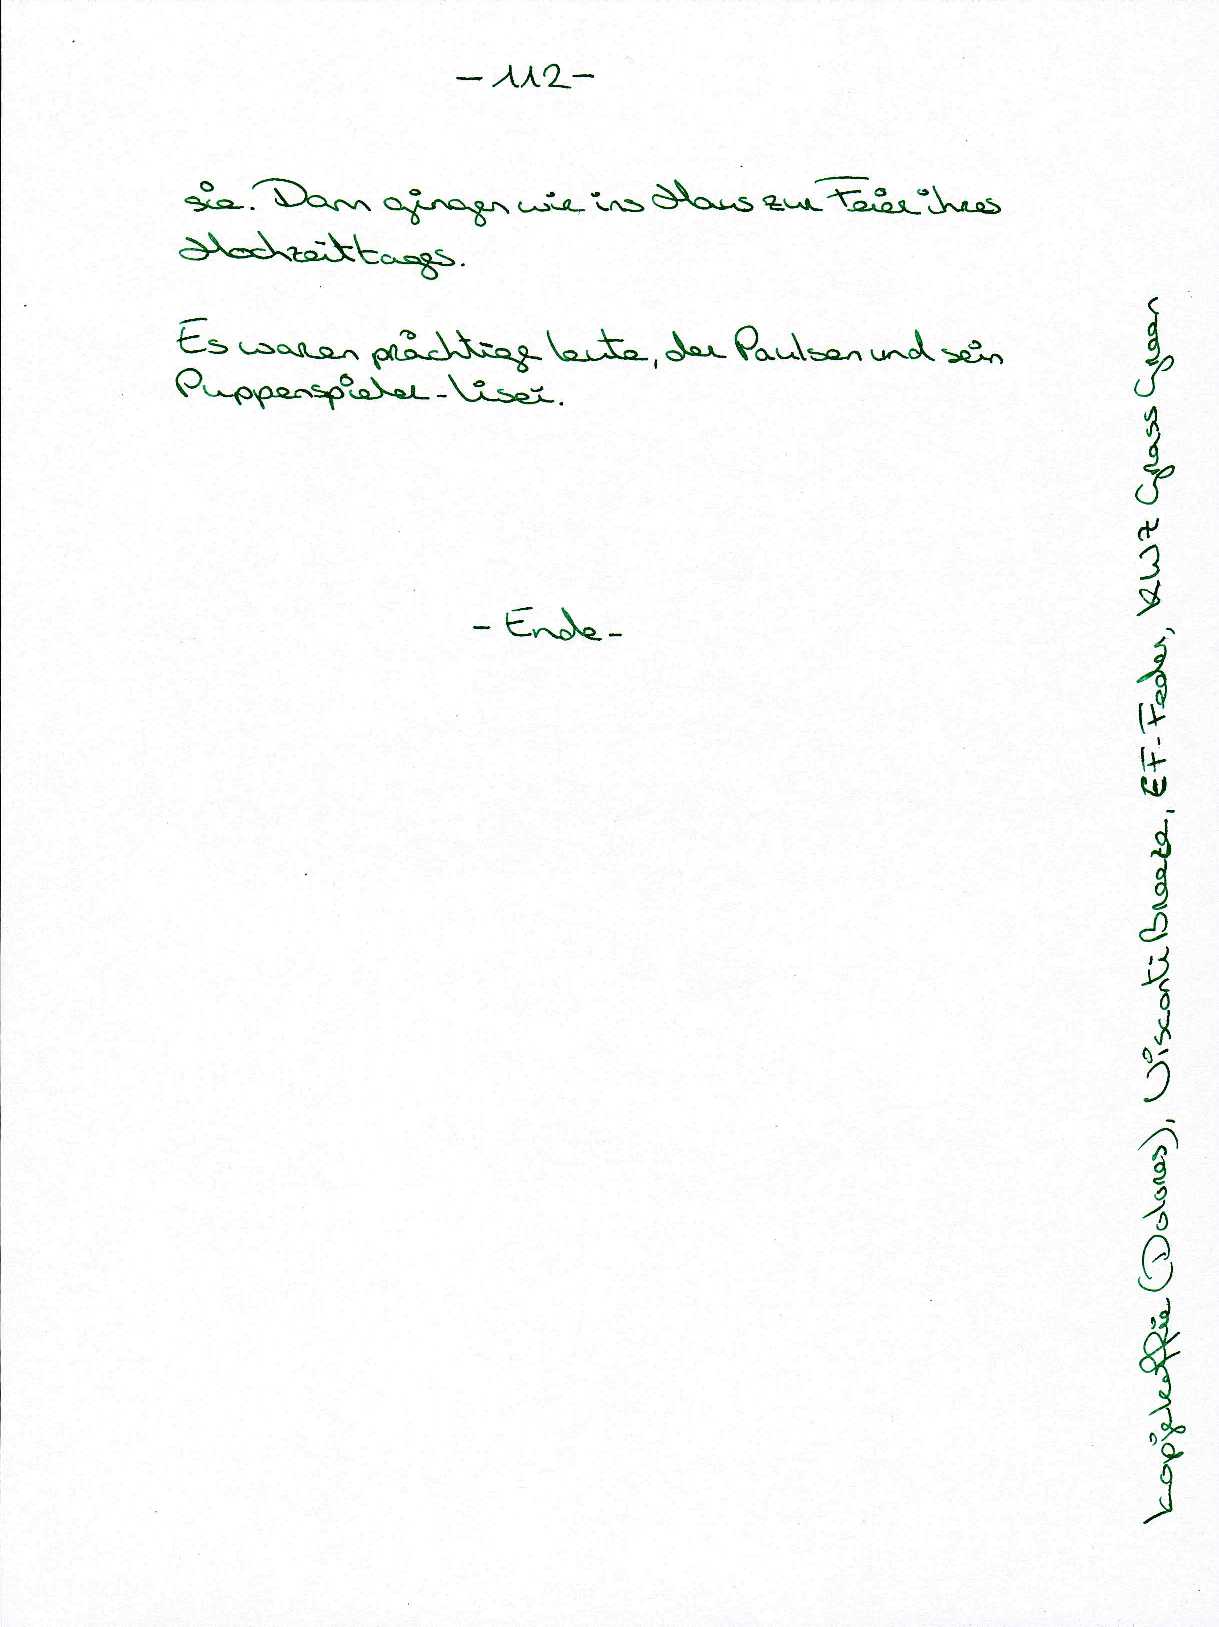 - 112 -
sie. Dann gingen wir ins Haus zur Feier ihres
Hochzeittags.
Es waren prächtige Leute, der Paulsen und sein
Puppenspieler-Lisei.
- Ende -
kopiekaffie (Dolores), Visconti Breeze, EF-Feder, KWZ Grass Green